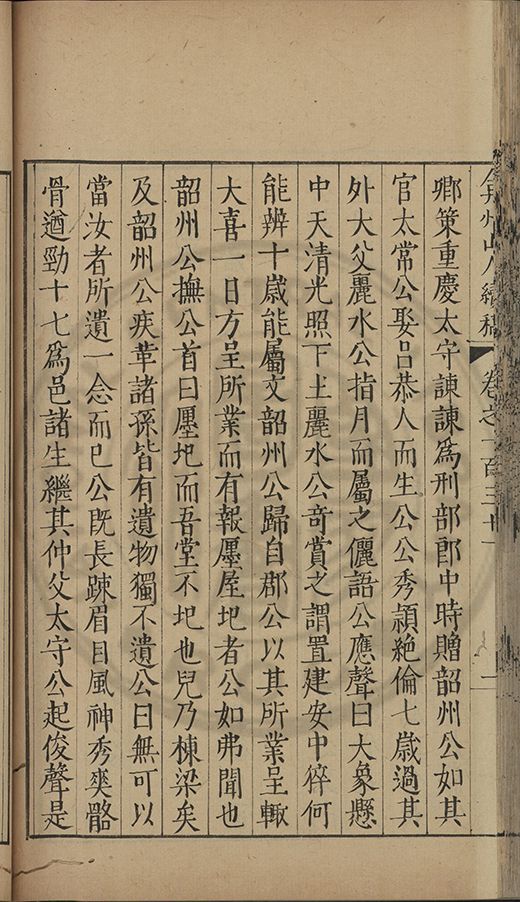 弇州山人續稿 卷之一百三十一 一
鄉策重慶太守諫諫爲刑部郎中時贈韶州公如其
官太常公娶呂恭人而生公公秀頴絶倫七歲過其
外大父麗水公指月而屬之儷語公應聲曰大象懸
中天清光照下土麗水公奇賞之謂置建安中稡何
能辨十歲能屬文韶州公歸自郡公以其所業呈輙
大喜一日方呈所業而有報廛屋圯者公如弗聞也
韶州公撫公首曰廛圯而吾堂不圯也兒乃棟梁矣
及韶州公疾革諸孫皆有遺物獨不遺公曰無可以
當汝者所遺一念而已公旣長踈眉目風神秀爽骼
骨遒勁十七爲邑諸生繼其仲父太守公起俊聲是